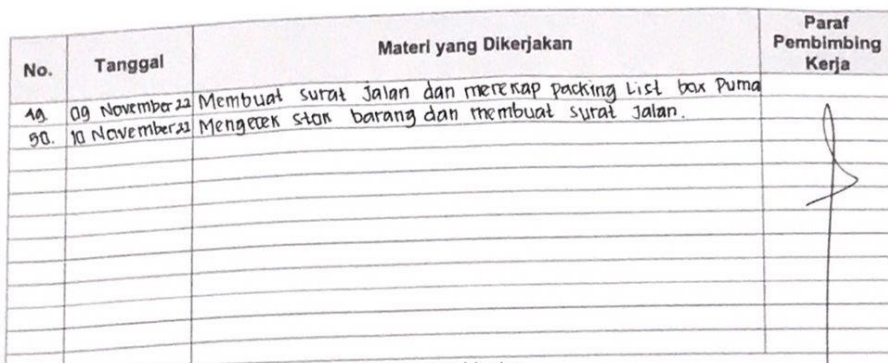 No. Tanggal Materi yang Dikerjakan Paraf Pembimbing Kerja
49. 09 November 22 Membuat surat Jalan dan merekap packing List box Puma
50. 10 November 22 Mengecek stok barang dan membuat surat Jalan.